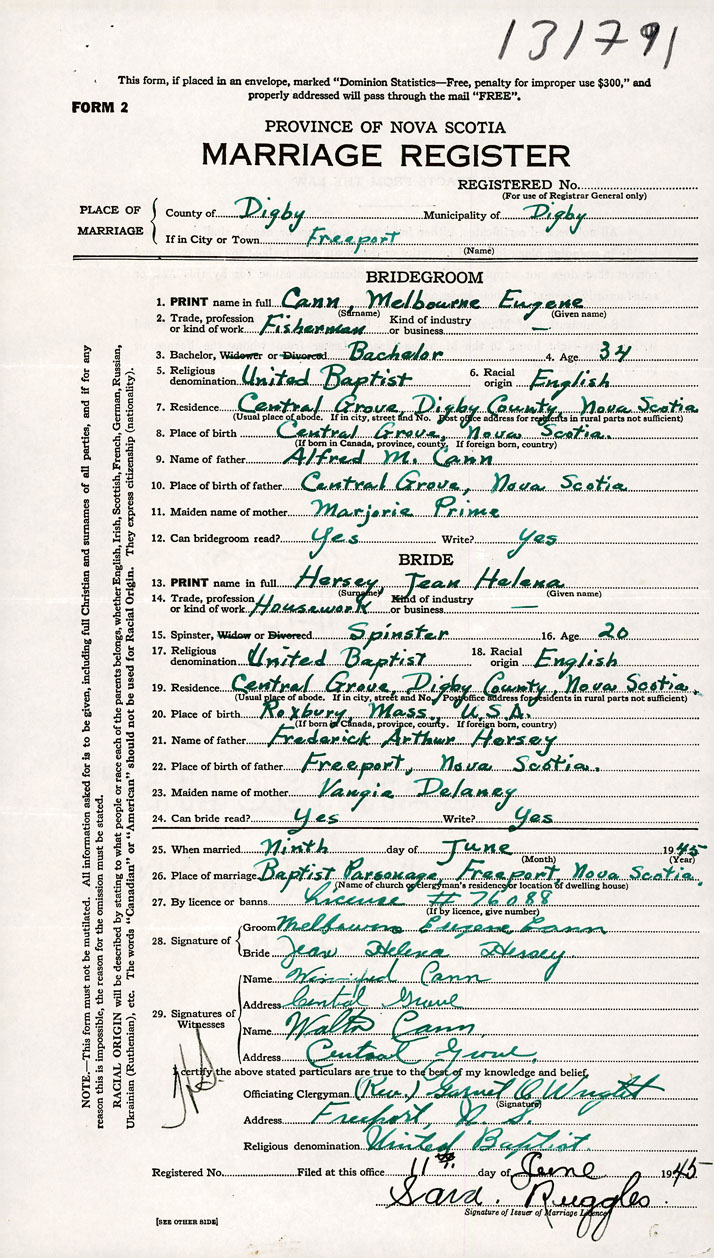 131791
This form, if placed in an envelope, marked "Dominion Statistics—Free, penalty for improper use $300," and
properly addressed will pass through the mail "FREE".
FORM 2
PROVINCE OF NOVA SCOTIA
MARRIAGE REGISTER
REGISTERED No.
(For use of Registrar General only)
PLACE OF MARRIAGE
County of Digby Municipality of Digby
If in City or Town Freeport
(Name)
BRIDEGROOM
1. PRINT name in full Cann, Melbourne Eugene
(Surname) (Given name)
2. Trade, profession or kind of work Fisherman Kind of industry or business —
3. Bachelor, Widower or Divorced Bachelor 4. Age 34
5. Religious denomination United Baptist 6. Racial origin English
7. Residence Central Grove, Digby County, Nova Scotia
(Usual place of abode. If in city, street and No. Post office address for residents in rural parts not sufficient)
8. Place of birth Central Grove, Nova Scotia.
(If born in Canada, province, county. If foreign born, country)
9. Name of father Alfred M. Cann
10. Place of birth of father Central Grove, Nova Scotia
11. Maiden name of mother Marjorie Prime
12. Can bridegroom read? Yes Write? Yes
BRIDE
13. PRINT name in full Hersey, Jean Helena
(Surname) (Given name)
14. Trade, profession or kind of work Housework Kind of industry or business —
15. Spinster, Widow or Divorced Spinster 16. Age 20
17. Religious denomination United Baptist 18. Racial origin English
19. Residence Central Grove, Digby County, Nova Scotia.
(Usual place of abode. If in city, street and No. Post office address for residents in rural parts not sufficient)
20. Place of birth Roxbury, Mass., U.S.A.
(If born in Canada, province, county. If foreign born, country)
21. Name of father Frederick Arthur Hersey
22. Place of birth of father Freeport, Nova Scotia.
23. Maiden name of mother Vangie Delaney
24. Can bride read? Yes Write? Yes
25. When married Ninth day of June 1945
(Month) (Year)
26. Place of marriage Baptist Parsonage, Freeport, Nova Scotia.
(Name of church or clergyman's residence or location of dwelling house)
27. By licence or banns License # 76088
(If by licence, give number)
28. Signature of
Groom Melbourne Eugene Cann
Bride Jean Helena Hersey
29. Signatures of Witnesses
Name Winifred Cann
Address Central Grove
Name Walter Cann,
Address Central Grove,
I certify the above stated particulars are true to the best of my knowledge and belief,
Officiating Clergyman (Rev.) Garnet O Wright
(Signature)
Address Freeport, N. S.
Religious denomination United Baptist.
Registered No. Filed at this office 11th. day of June 1945
Sara. Ruggles.
Signature of Issuer of Marriage Licence
[SEE OTHER SIDE]
NOTE.—This form must not be mutilated. All information asked for is to be given, including full Christian and surnames of all parties, and if for any
reason this is impossible, the reason for the omission must be stated.
RACIAL ORIGIN will be described by stating to what people or race each of the parents belongs, whether English, Irish, Scottish, French, German, Russian,
Ukrainian (Ruthenian), etc. The words "Canadian" or "American" should not be used for Racial Origin. They express citizenship (nationality).